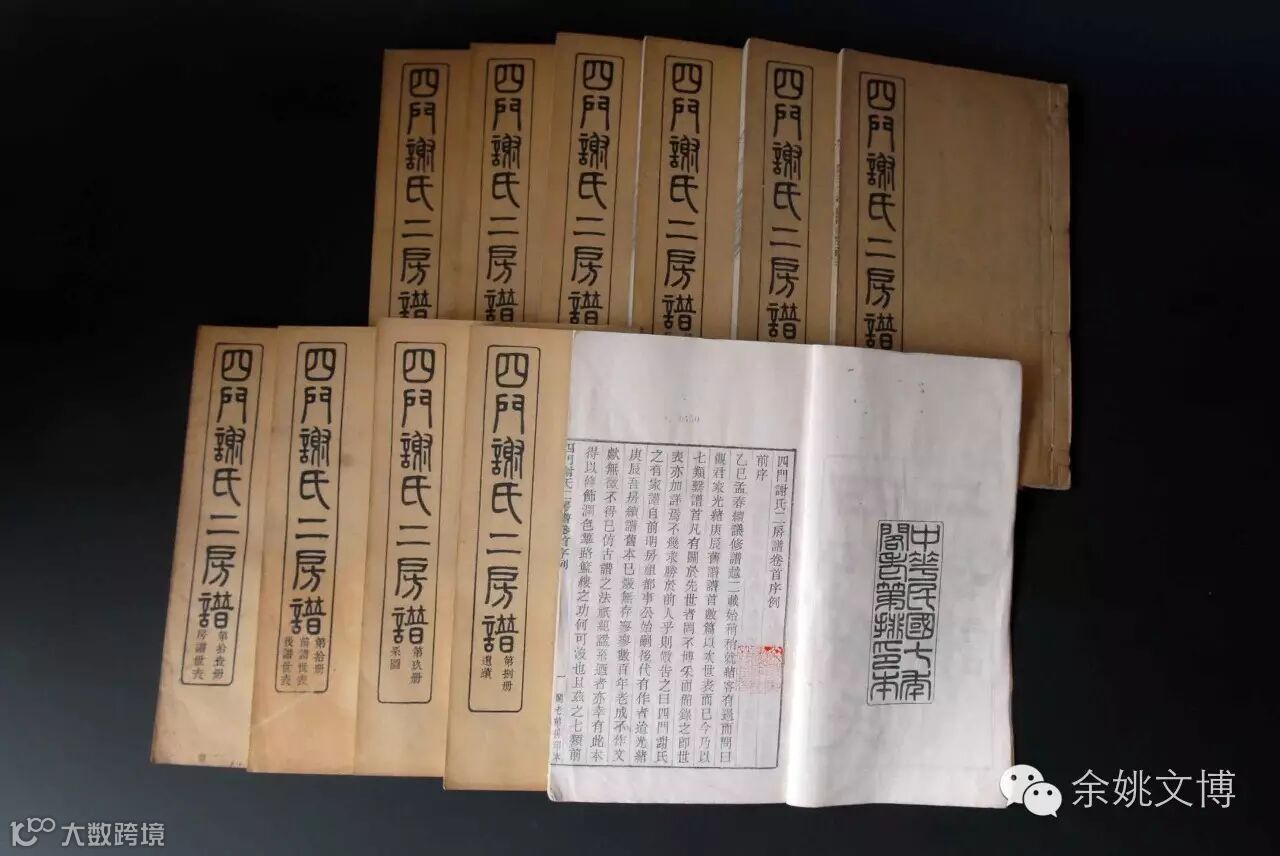 四門謝氏二房譜
四門謝氏二房譜
四門謝氏二房譜
四門謝氏二房譜
四門謝氏二房譜
四門謝氏二房譜
四門謝氏二房譜
第拾壹册
房譜世表
四門謝氏二房譜
第拾册
前譜世表
後譜世表
四門謝氏二房譜
第玖册
采圖
四門謝氏二房譜
第捌册
遺蹟
中華民國七年
閣老第排印本
四門謝氏二房譜卷首序例
前序
乙巳孟春續議修譜越二載始稍稍就緒客有過而問曰
觀君家光緒庚辰舊譜譜首數篇以次世表而已今乃以
七類繫譜首凡有關於先世者罔不博采而備錄之即世
表亦加詳焉不幾求勝於前人乎則敬告之曰四門謝氏
之有家譜自前明房祖都事公始嗣後代有作者迨光緒
庚辰吾房續譜舊本已散無存寥寥數百年老成不作文
獻無徵不得已仿古譜之法
得以修飾潤色蓽路籃縷之功何可沒也且茲之七類前
四門謝氏二房譜卷首序例
一
閣老第排印本
余姚文博
大数跨境